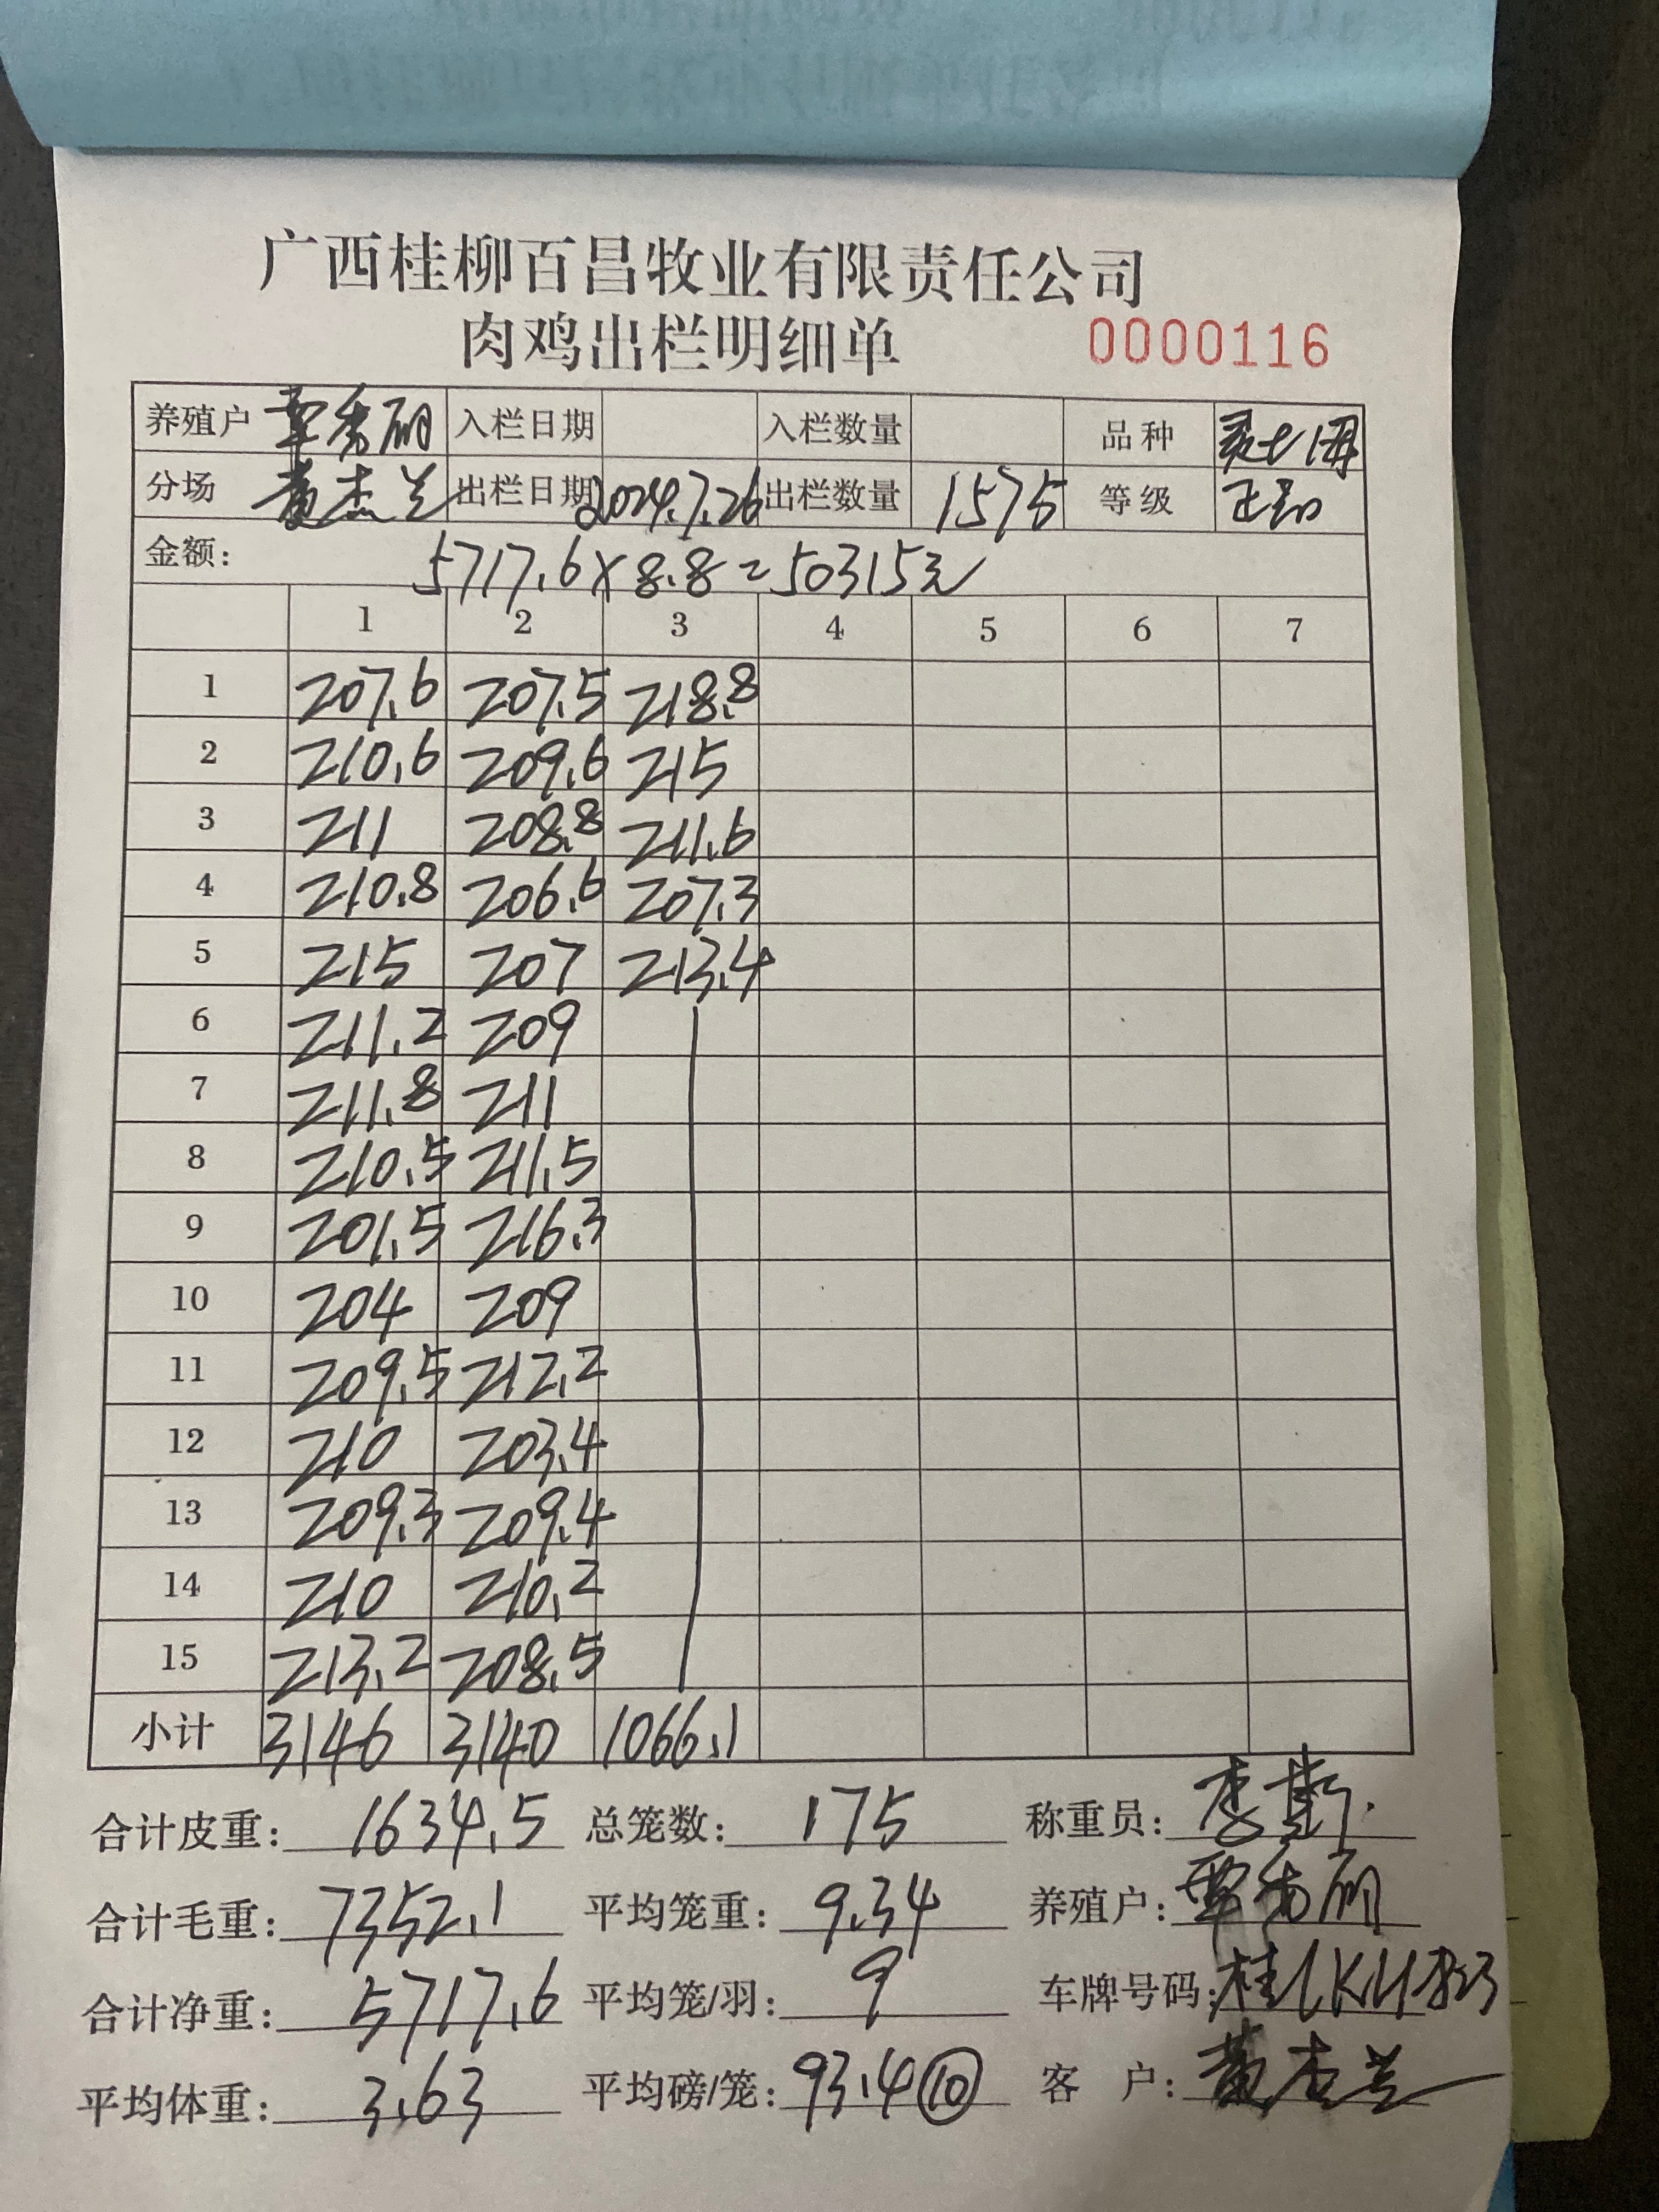 广西桂柳百昌牧业有限责任公司
肉鸡出栏明细单 0000116
养殖户 覃秀丽 入栏日期 入栏数量 品种
分场 黄杰兰 出栏日期 2024.7.26 出栏数量 1575 等级 正品
金额: 5717.6×8.8=50315元
1 2 3 4 5 6 7
1 207.6 207.5 218.8
2 210.6 209.6 215
3 211 208.8 211.6
4 210.8 206.6 207.3
5 215 207 213.4
6 211.2 209
7 211.8 211
8 210.5 211.5
9 201.5 216.3
10 204 209
11 209.5 212.2
12 210 203.4
13 209.3 209.4
14 210 210.2
15 213.2 208.5
小计 3146 3140 1066.1
合计皮重: 1634.5 总笼数: 175 称重员:
合计毛重: 7352.1 平均笼重: 9.34 养殖户: 覃秀丽
合计净重: 5717.6 平均笼/羽: 9 车牌号码:
平均体重: 3.63 平均磅/笼: 93.4 ⑩ 客户: 黄杰兰